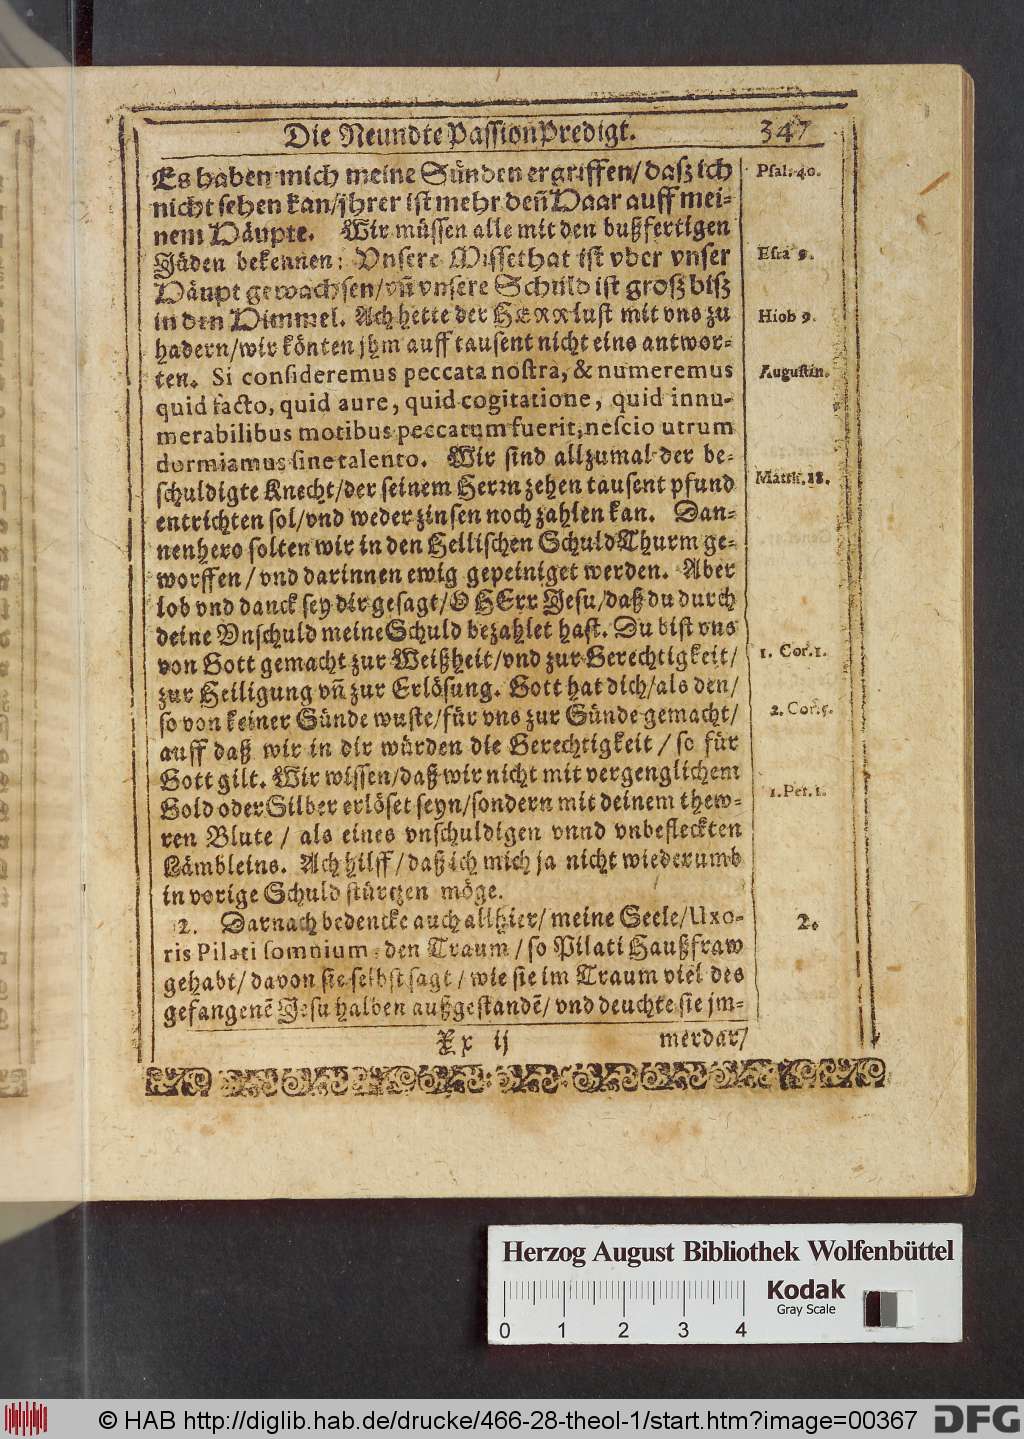 Die Neundte Passion Predigt. 347
Es haben mich meine Sünden ergriffen/ dasz ich
nicht sehen kan/ jhrer ist mehr deñ Haar auff mei-
nem Häupte. Wir müssen alle mit den bußfertigen
Jüden bekennen: Vnsere Missethat ist vber vnser
Häupt gewachsen/ vñ vnsere Schuld ist grosz bisz
in den Himmel. Ach hette der HERR lust mit vns zu
hadern/ wir könten jhm auff tausent nicht eins antwor-
ten. Si consideremus peccata nostra, & numeremus
quid facto, quid aure, quid cogitatione, quid innu-
merabilibus motibus peccatum fuerit, nescio utrum
dormiamus sine talento. Wir sind allzumal der be-
schuldigte Knecht/ der seinem Herrn zehen tausent pfund
entrichten sol/ vnd weder zinsen noch zahlen kan. Dan-
nenhero solten wir in den Hellischen SchuldThurm ge-
worffen/ vnd darinnen ewig gepeiniget werden. Aber
lob vnd danck sey dir gesagt/ O HErr Jesu/ daß du durch
deine Vnschuld meine Schuld bezahlet hast. Du bist vns
von Gott gemacht zur Weißheit/ vnd zur Gerechtigkeit/
zur Heiligung vñ zur Erlösung. Gott hat dich/ als den/
so von keiner Sünde wuste/ für vns zur Sünde gemacht/
auff daß wir in dir würden die Gerechtigkeit / so für
Gott gilt. Wir wissen/ daß wir nicht mit vergenglichem
Gold oder Silber erlöset seyn/ sondern mit deinem thew-
ren Blute / als eines vnschuldigen vnnd vnbefleckten
Lämbleins. Ach hilff/ daß ich mich ja nicht wiederumb
in vorige Schuld stürtzen möge.
2. Darnach bedencke auch allhier/ meine Seele/ Uxo-
ris Pilati somnium, den Traum / so Pilati Haußfraw
gehabt/ davon sie selbst sagt / wie sie im Traum viel des
gefangenē Jesu halben außgestandē/ vnd deuchte sie jm-
Xx ij merdar/
Psal. 40.
Esra 9.
Hiob 9.
Augustin.
Matth. 18.
1. Cor. 1.
2. Cor. 5.
1. Pet. 1.
2.
Herzog August Bibliothek Wolfenbüttel
Kodak
Gray Scale
0 1 2 3 4
© HAB http://diglib.hab.de/drucke/466-28-theol-1/start.htm?image=00367
DFG